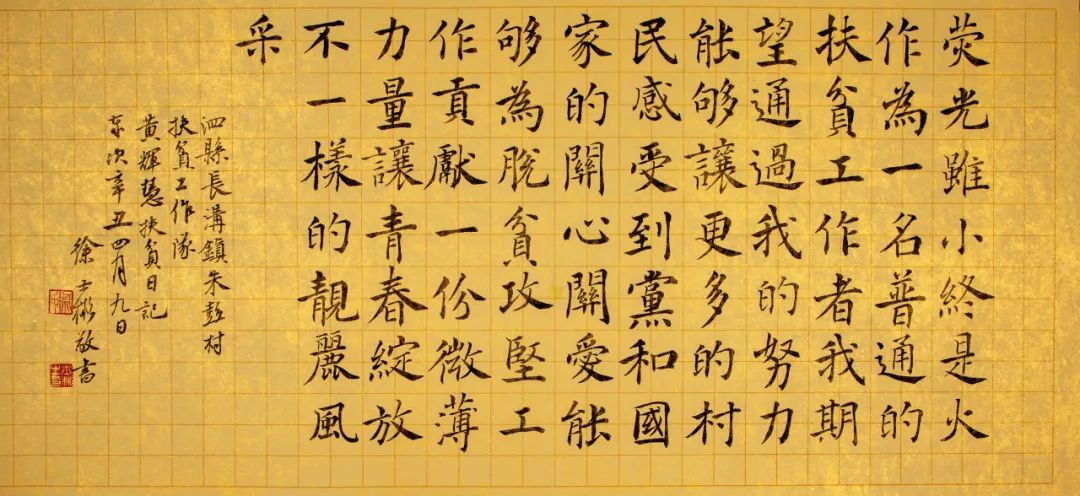 荧光雖小終是火
作為一名普通的
扶貧工作者我期
望通過我的努力
能够讓更多的村
民感受到黨和國
家的關心關愛能
够為脫貧攻堅工
作貢獻一份微薄
力量讓青春綻放
不一樣的靚麗風
采
泗縣長溝鎮朱彭村
扶貧工作隊
黃輝慧扶貧日記
次辛丑四月九日
徐士彬敬書